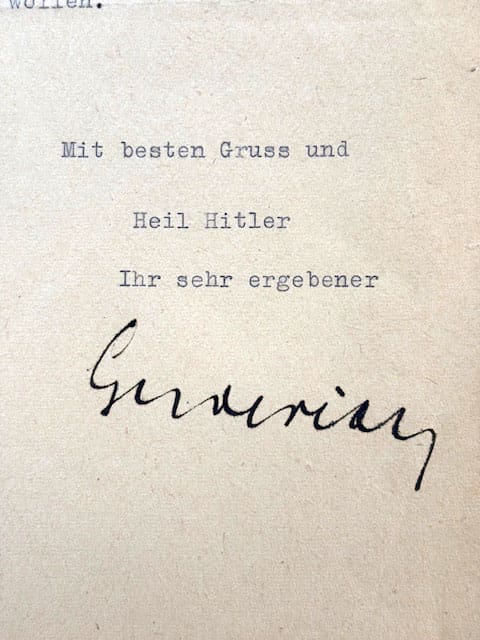 wollen.
Mit besten Gruss und
Heil Hitler
Ihr sehr ergebener
Guderian